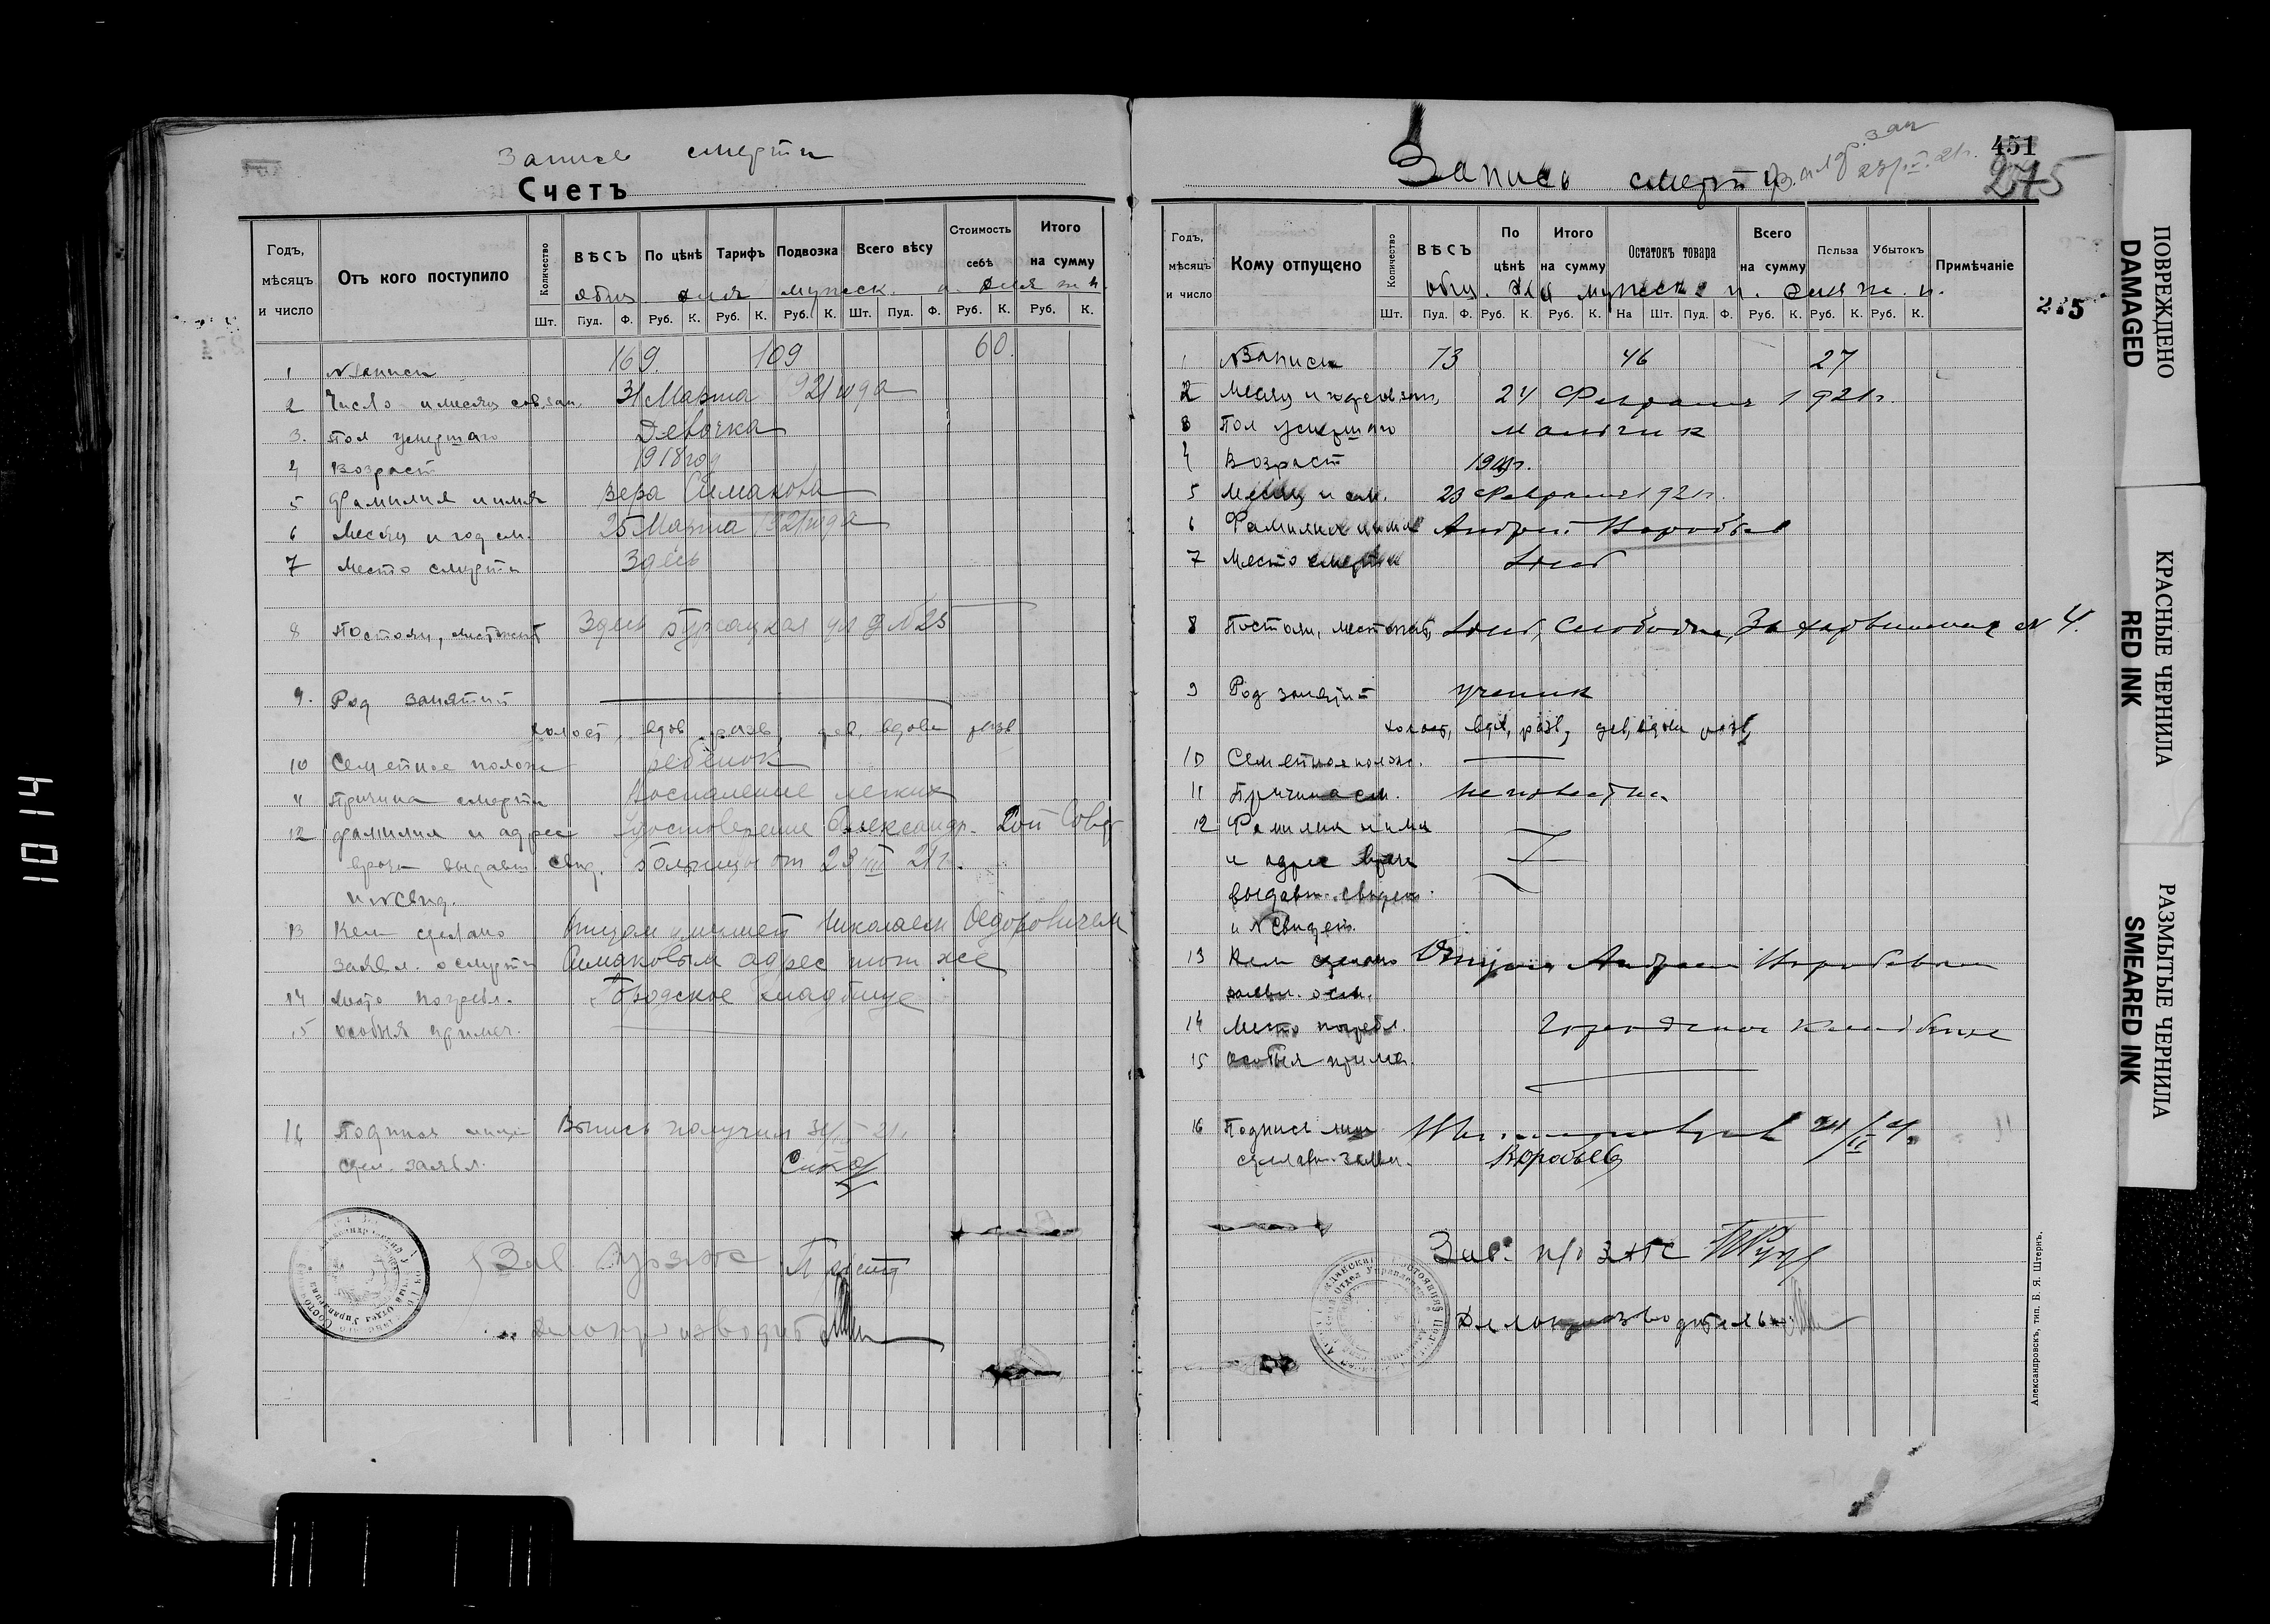 Запись смерти
Счетъ
Годъ, мѣсяцъ и число
Отъ кого поступило
Количество
ВѢСЪ
По цѣнѣ
Тарифъ
Подвозка
Всего вѣсу
Стоимость себѣ
Итого на сумму
общ. для мужск. и. для ж. п.
Шт. Пуд. Ф. Руб. К. Руб. К. Руб. К. Шт. Пуд. Ф. Руб. К. Руб. К.
1 № записи 169. 109 60.
2 Число и месяц сов. зап. 31 Марта 921 года
3. Пол умершаго Девочка
4 Возраст 1918 год
5 Фамилия и имя Вера Симакова
6 Месяц и год см. 25 Марта 1921 года
7 Место смерти Здесь
8 Постоян, мест жит Здесь ул д № 25
9. Род занятий
холост, вдов, разв, дев, вдова разв
10 Семейное полож ребенок
11 Причина смерти Воспаление легких
12 Фамилия и адрес удостоверение Александр. 2ой Сов
врача выдавш. свид. больницы от 28 III 21 г.
и № свид.
13 Кем сделано Отцом умершей Николаем Федоровичем
заявл. о смерти Симаковым адрес тот же
14 Место погребл. Городское кладбище
15 особыя примеч.
16 Подпись лица Выпись получил 31/III 21.
сдел. заявл.
Зав.
Делопроизводит
Запись смерти
451
275
Годъ, мѣсяцъ и число
Кому отпущено
Количество
ВѢСЪ
По цѣнѣ
Итого на сумму
Остатокъ товара
Всего на сумму
Польза
Убытокъ
Примѣчаніе
общ. для мужск. п. для ж. п.
Шт. Пуд. Ф. Руб. К. Руб. К. На Шт. Пуд. Ф. Руб. К. Руб. К. Руб. К.
275
1 № Записи 73 46 27
2 Месяц и год сов. зап, 24 Февраля 1921 г.
3 Пол умершаго мальчик
4 Возраст
5 Месяц и см. 23 Февраля 1921 г.
6 Фамилия и имя Андрей Воробьев
7 Место смерти
8 Постоян, мест жит, Слободка, № 4.
9 Род занятий ученик
холост, вдов, разв, дев, вдова разв,
10 Семейное полож.
11 Причина см. неизвестна
12 Фамилия и имя
и адрес врача
выдавш. свидет.
и № Свидет.
13 Кем сделано Отцом Андреем Воробьевым
заявл. о см.
14 Место погребл. Городское кладбище
15 особыя примеч.
16 Подпись лица 24/II 21.
сделавш. заявл. Воробьев
Зав. п/о ЗАГС
Делопроизводитель
Александровскъ, тип. Б. Я. Штернъ.
ПОВРЕЖДЕНО
DAMAGED
КРАСНЫЕ ЧЕРНИЛА
RED INK
РАЗМЫТЫЕ ЧЕРНИЛА
SMEARED INK
1014